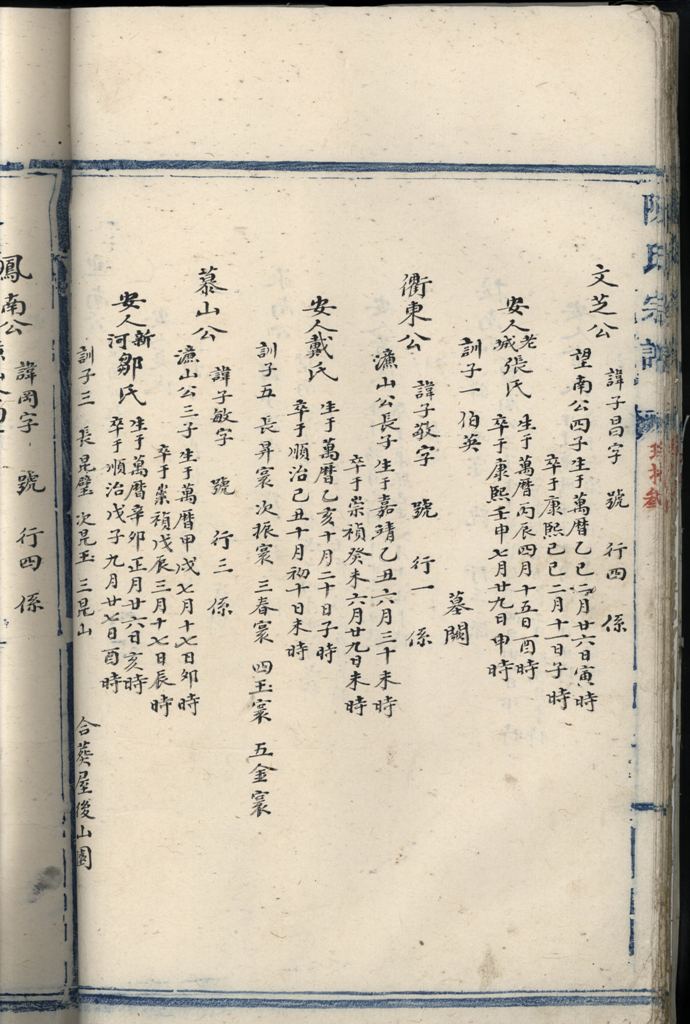 陳氏宗譜
文芝公
諱子昌字 號 行四 係
望南公四子生于萬曆乙巳二月廿六日寅時
卒于康熙己巳二月十一日子時
安人老城張氏
生于萬曆丙辰四月十五日酉時
卒于康熙壬申七月廿九日申時
訓子一 伯英
墓闕
衢東公
諱子敬字 號 行一 係
濂山公長子生于嘉靖乙丑六月三十未時
卒于崇禎癸未六月廿九日未時
安人戴氏
生于萬曆乙亥十月二十日子時
卒于順治己丑十月初十日未時
訓子五 長昇寰 次振寰 三春寰 四玉寰 五金寰
慕山公
諱子敏字 號 行三 係
濂山公三子生于萬曆甲戌七月十七日卯時
卒于崇禎戊辰三月十七日辰時
安人新河鄒氏
生于萬曆辛卯正月廿六日亥時
卒于順治戊子九月廿七日酉時
訓子三 長昆璧 次昆玉 三昆山
合葬屋後山園
鳳南公
諱岡字 號 行四 係